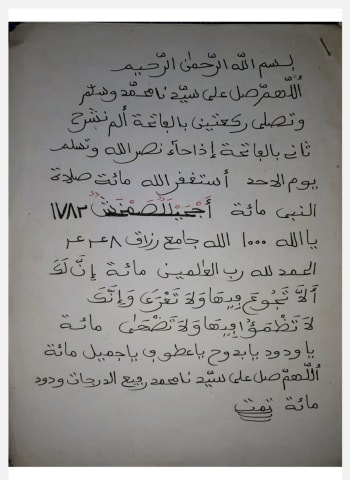 بسم الله الرّحمٰن الرّحيم
اللّهمّ صل على سيّدنا محمّد وسلّم
وتصلى ركعتين بالفاتحة ألم نشرح
ثاني بالفاتحة إذا جآء نصر الله وتسلم
يوم الاحد أستغفر الله مائة صلاة
النبي مائة ١٧٨٢
يا الله ١٠٠٠ الله جامع رزاق
الحمد لله رب العلمين مائة إِنَّ لَكَ
أَلَّا تَجُوعَ فِيهَا وَلَا تَعْرَى وَإِنَّكَ
لَا تَظْمَؤُا فِيهَا وَلَا تَضْحَى مائة
يا ودود يا بدوح يا عطوف يا جميل مائة
اللّهمّ صل على سيّدنا محمد رفيع الدرجات ودود
مائة تمت